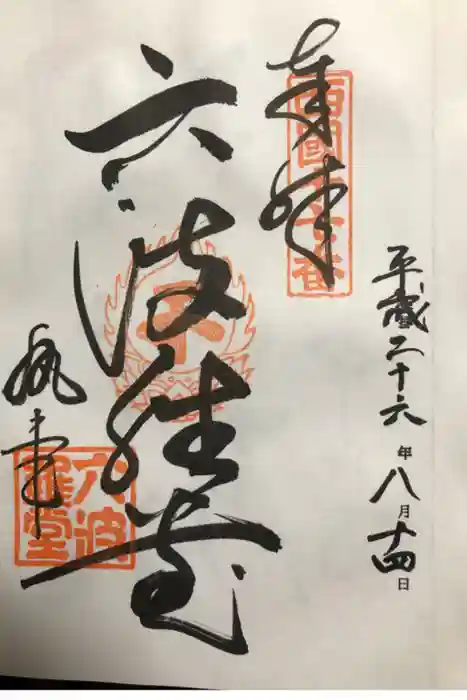 奉拝
西國十七番
平成二十六年八月十四日
六波羅堂
執事
六波羅堂